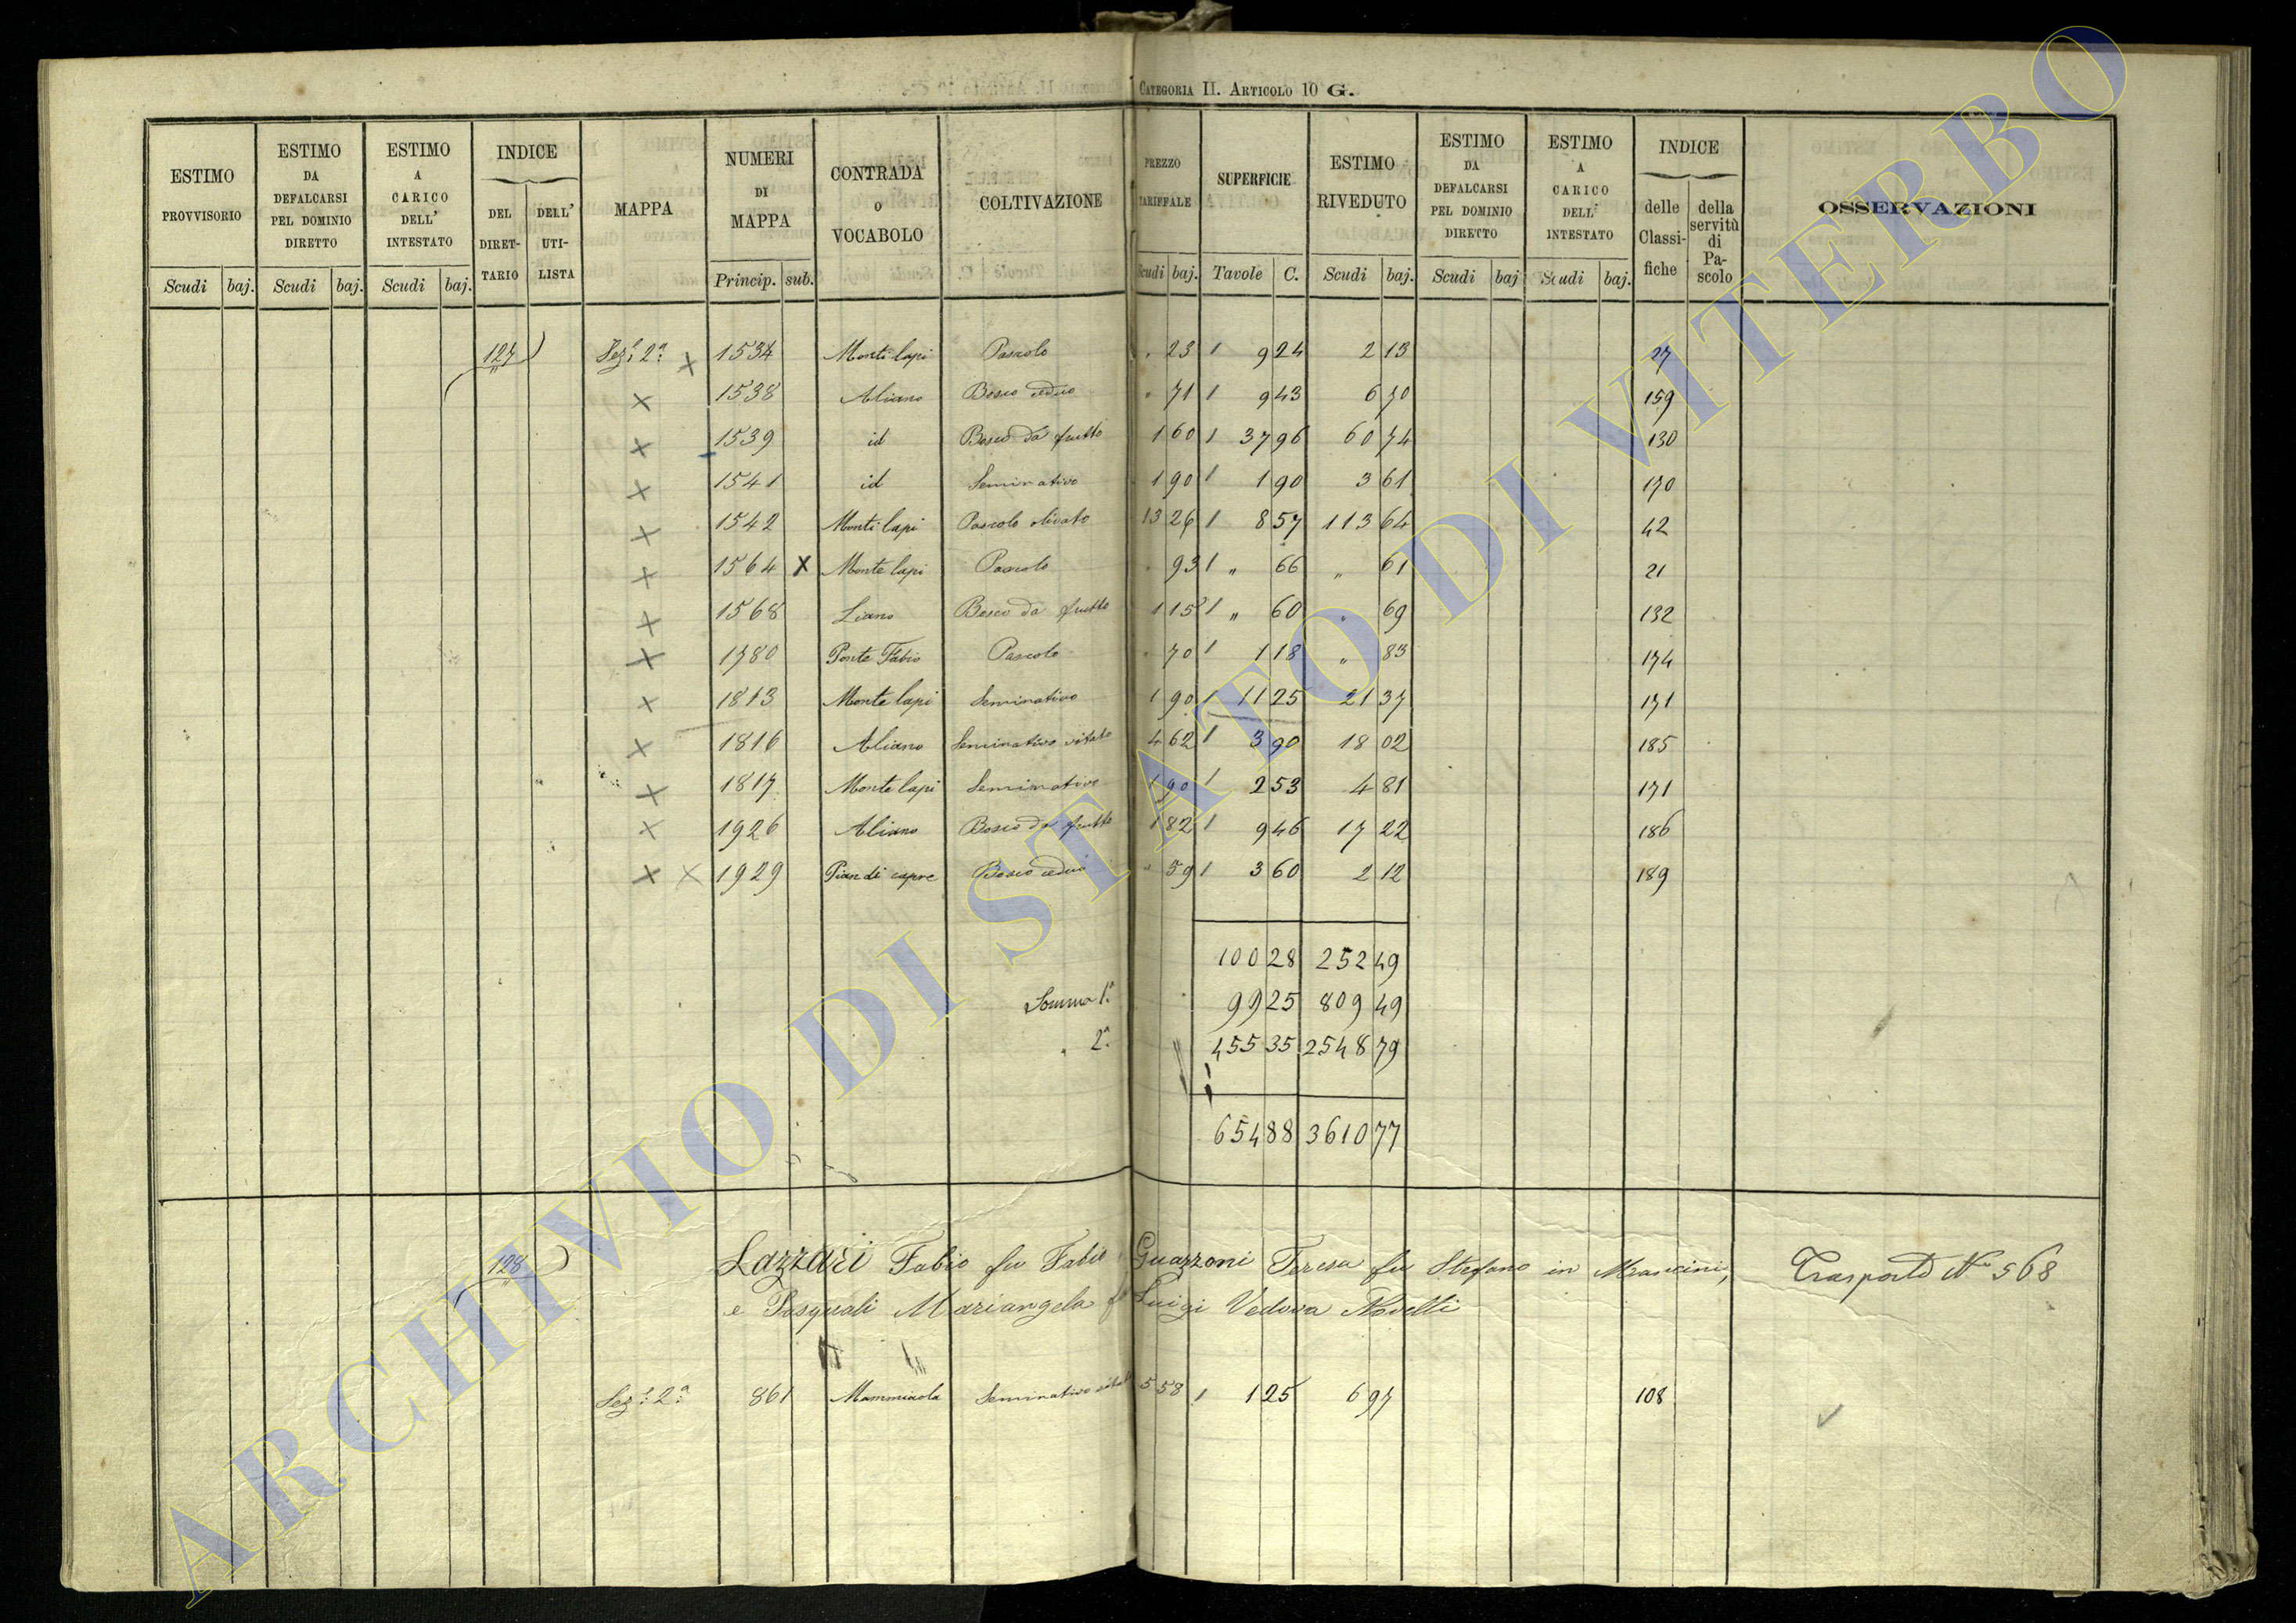 CATEGORIA II. ARTICOLO 10 G.
ESTIMO PROVVISORIO Scudi baj. ESTIMO DA DEFALCARSI PEL DOMINIO DIRETTO Scudi baj. ESTIMO A CARICO DELL' INTESTATO Scudi baj. INDICE DEL DIRET-TARIO DELL' UTI-LISTA MAPPA NUMERI DI MAPPA Princip. sub. CONTRADA O VOCABOLO COLTIVAZIONE PREZZO TARIFFALE Scudi baj. SUPERFICIE Tavole C. ESTIMO RIVEDUTO Scudi baj. ESTIMO DA DEFALCARSI PEL DOMINIO DIRETTO Scudi baj ESTIMO A CARICO DELL' INTESTATO Scudi baj. INDICE delle Classi-fiche della servitù di Pa-scolo OSSERVAZIONI
127 Sez.e 2a X 1534 Monti lapi Pascolo " 23 / 9 24 2 13 27
X 1538 Aliano Bosco ceduo " 71 / 9 43 6 70 159
X 1539 id Bosco da frutto 1 60 / 37 96 60 74 130
X 1541 id Seminativo 1 90 / 1 90 3 61 170
X 1542 Monti lapi Pascolo olivato 13 26 / 8 57 113 64 42
X 1564 X Monte lapi Pascolo " 93 / " 66 " 61 21
X 1568 Liano Bosco da frutto 1 15 / " 60 " 69 132
X 1780 Ponte Fabio Pascolo " 70 / 1 18 " 83 174
X 1813 Monte lapi Seminativo 1 90 / 11 25 21 37 171
X 1816 Aliano Seminativo vitato 4 62 / 3 90 18 02 185
X 1817 Monte lapi Seminativo 1 90 / 2 53 4 81 171
X 1926 Aliano Bosco da frutto 1 82 / 9 46 17 22 186
X X 1929 Pian di capre Bosco ceduo " 59 / 3 60 2 12 189
100 28 252 49
Somma 1a 99 25 809 49
" 2a 455 35 2548 79
654 88 3610 77
128 Lazzari Fabio fu Fabio Guazzoni Teresa fu Stefano in Mancini, Trasporto No 568
e Pasquali Mariangela fu Luigi Vedova Novelli
Sez.e 2a 861 Mammiaola Seminativo vitato 5 58 / 1 25 6 97 108
ARCHIVIO DI STATO DI VITERBO